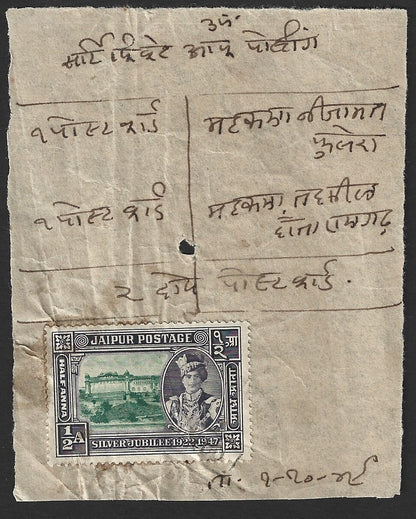 उफ
सर्टिफिकेट आफ पोस्टींग
१ पोस्ट कार्ड
महकमा नीजामत
फुलेरा
१ पोस्ट कार्ड
महकमा तहसील
दाँता रामगढ़
२ दोय पोस्ट कार्ड.
JAIPUR POSTAGE
HALF ANNA
१/२ आ
1/2 A
SILVER JUBILEE 1922-1947
ता. १-१०-४८